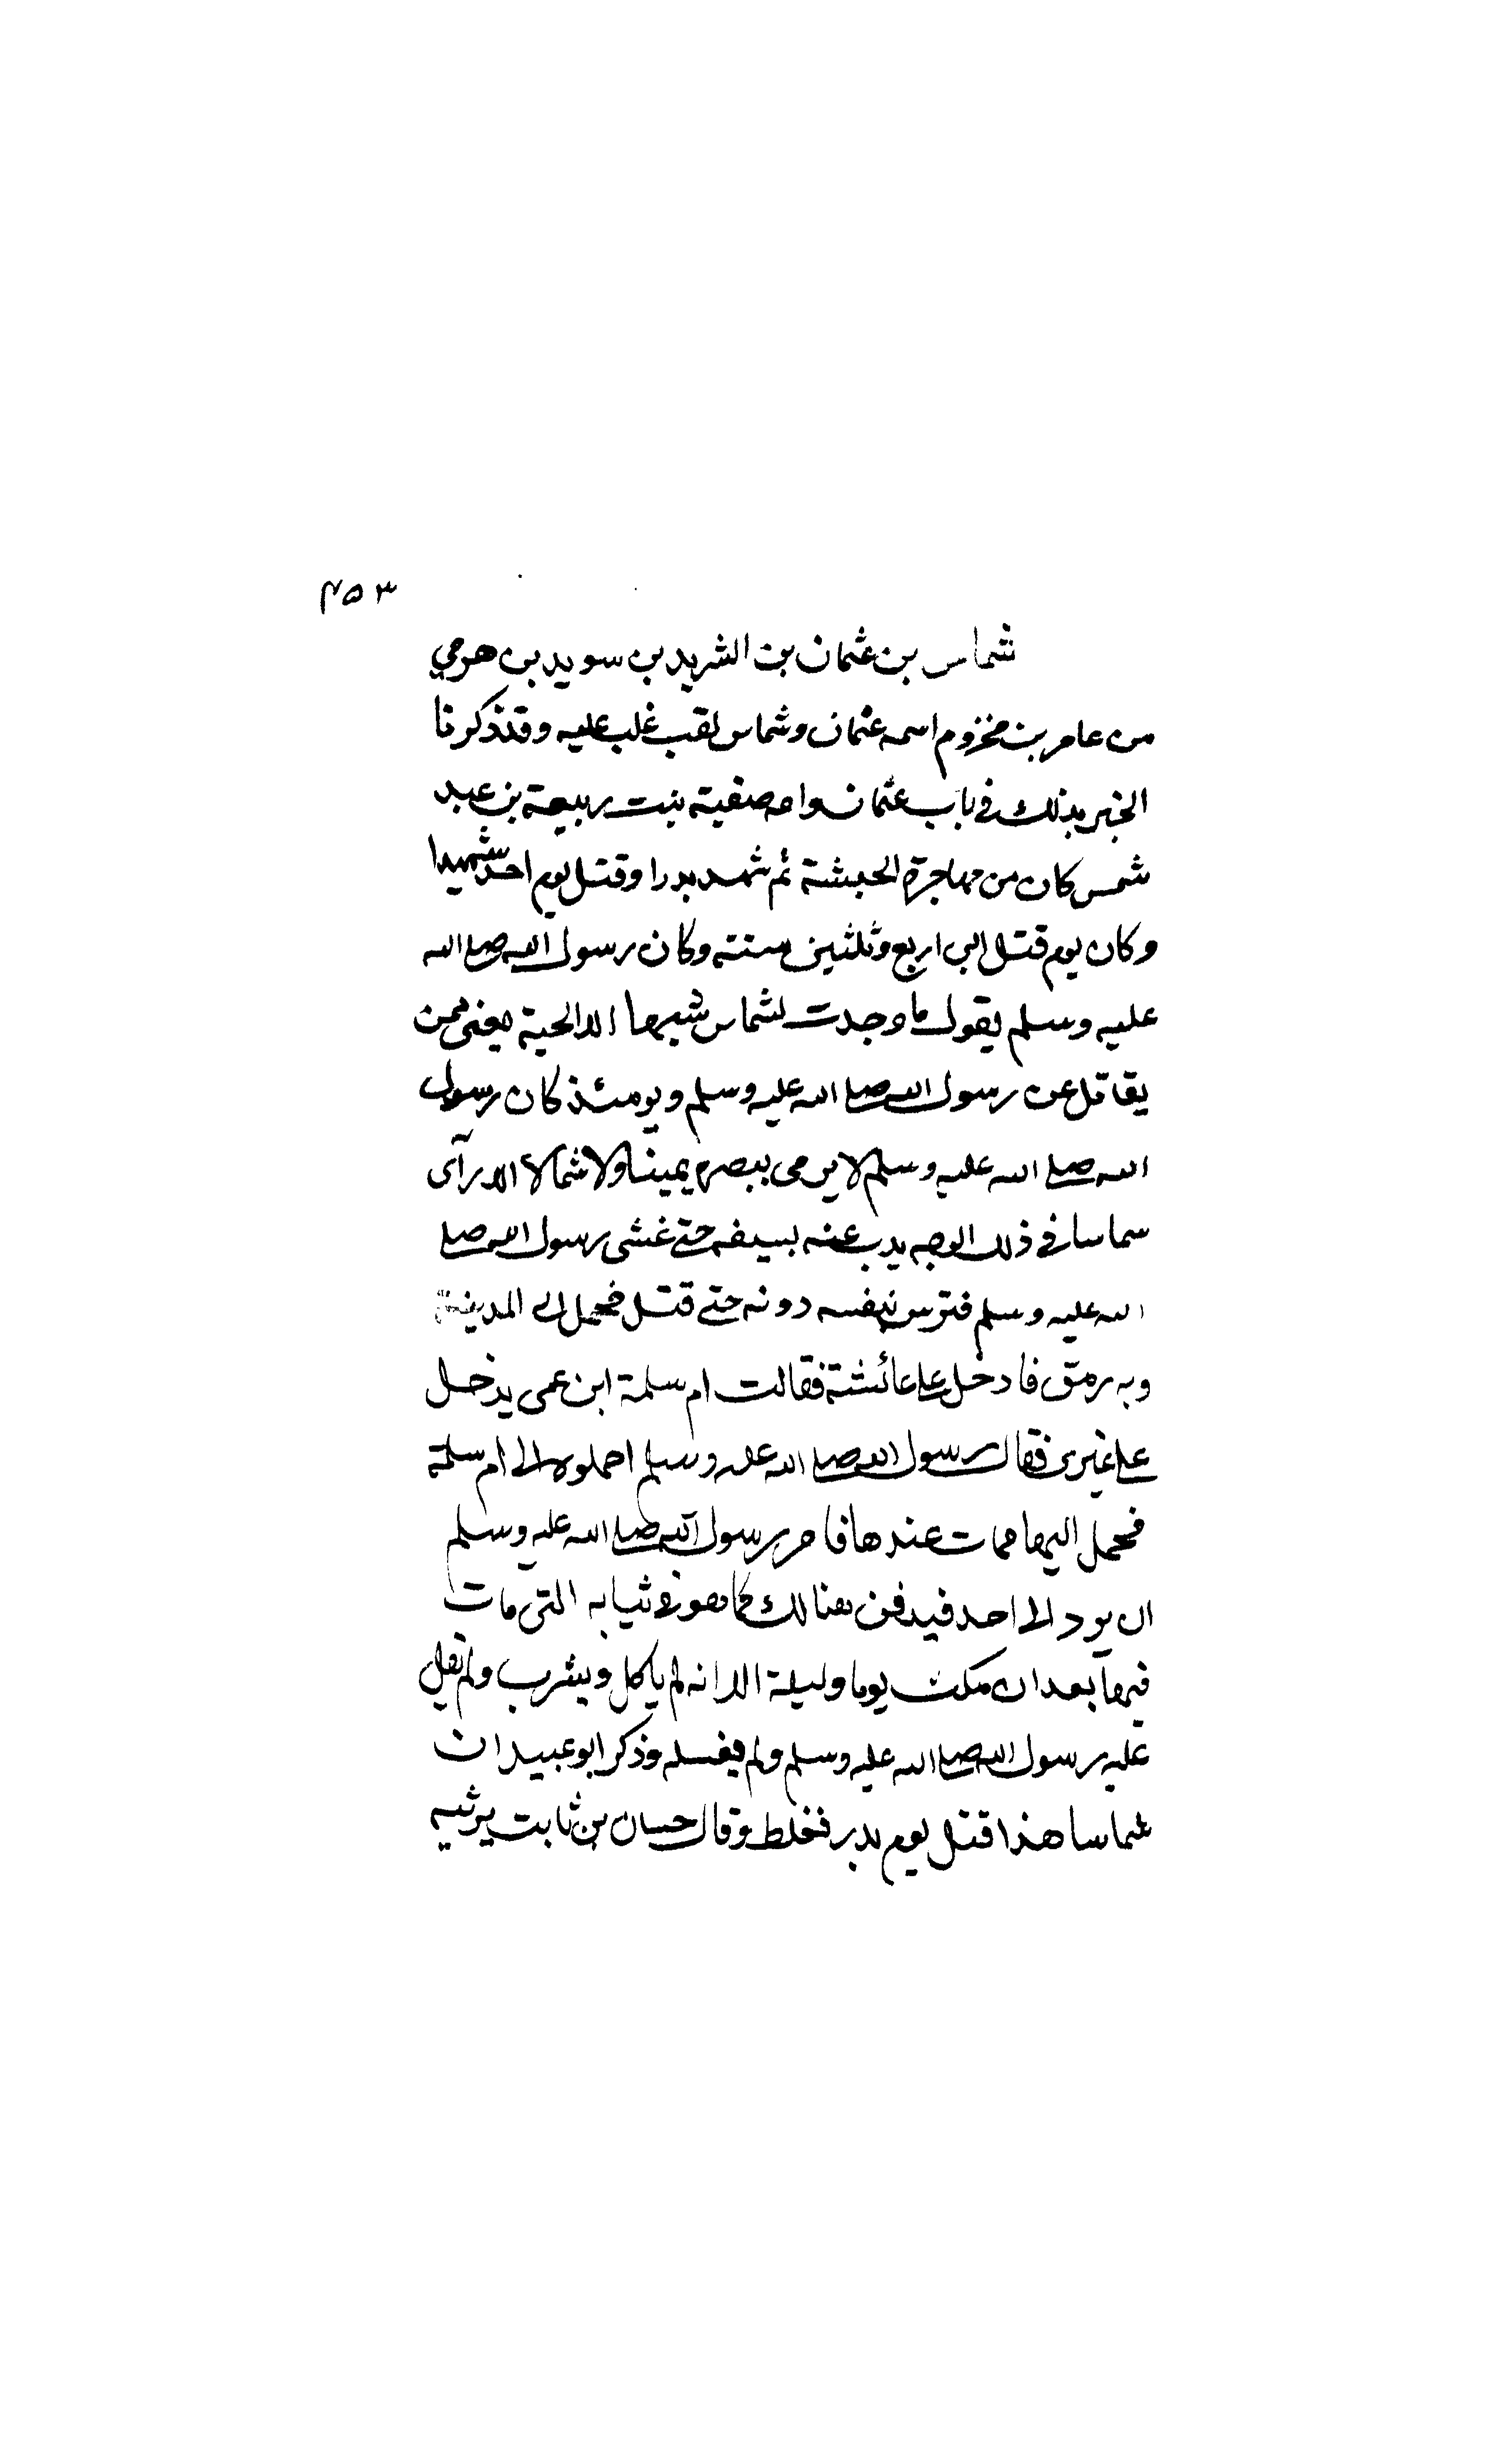 ۴۵۳
شماس بن عثمان بن الشريد بن سويد بن هرمي
من عامر بن مخزوم اسمه عثمان وشماس لقب غلب عليه وقد ذكرنا
الخبر بذلك في باب عثمان وامه صفية بنت ربيعة بن عبد
شمس كان من مهاجرة الحبشة ثم شهد بدرا وقتل يوم احد شهيدا
وكان يوم قتل ابن اربع وثلثين سنة وكان رسول الله صلى الله
عليه وسلم يقول ما وجدت لشماس شبيها الا الحية يعنى ممن
يقاتل عن رسول الله صلى الله عليه وسلم ويومئذ كان رسول
الله صلى الله عليه وسلم لا يرمى ببصره يمينا ولا شمالا الا رآى
سماسا في ذلك الوجه يدب عنه بسيفه حتى غشى رسول الله صلى
الله عليه وسلم فترس بنفسه دونه حتى قتل فحمل الى المدينة
وبه رمق فادخل على عائشة فقالت ام سلمة ابن عمى يدخل
على غيرى فقال رسول الله صلى الله عليه وسلم احملوه الى ام سلمة
فحمل اليها فمات عندها فامر رسول الله صلى الله عليه وسلم
ان يرد الى احد فيدفن هنالك كما هو في ثيابه التى مات
فيها بعد ان مكث يوما وليلة الا انه لم ياكل ويشرب ولم يصل
عليه رسول الله صلى الله عليه وسلم ولم يغسله وذكر ابو عبيد ان
شماسا هذا قتل يوم بدر فغلط وقال حسان بن ثابت يرثيه